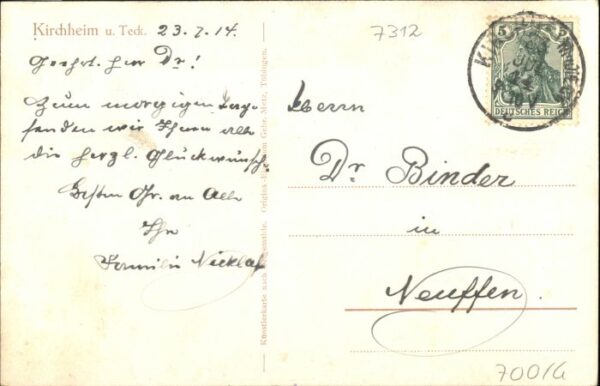 Kirchheim u. Teck. 23.7.14.
Geehrt. Herr Dr!
Zum morgigen Tage
senden wir Ihnen alle
die herzl. Glückwünsche
Besten Gr. an Alle
Ihr
Familie
Künstlerkarte nach Gemälde. Original Gebr. Metz, Tübingen.
7312
5
DEUTSCHES REICH
Herrn
Dr. Binder
in
Neuffen.